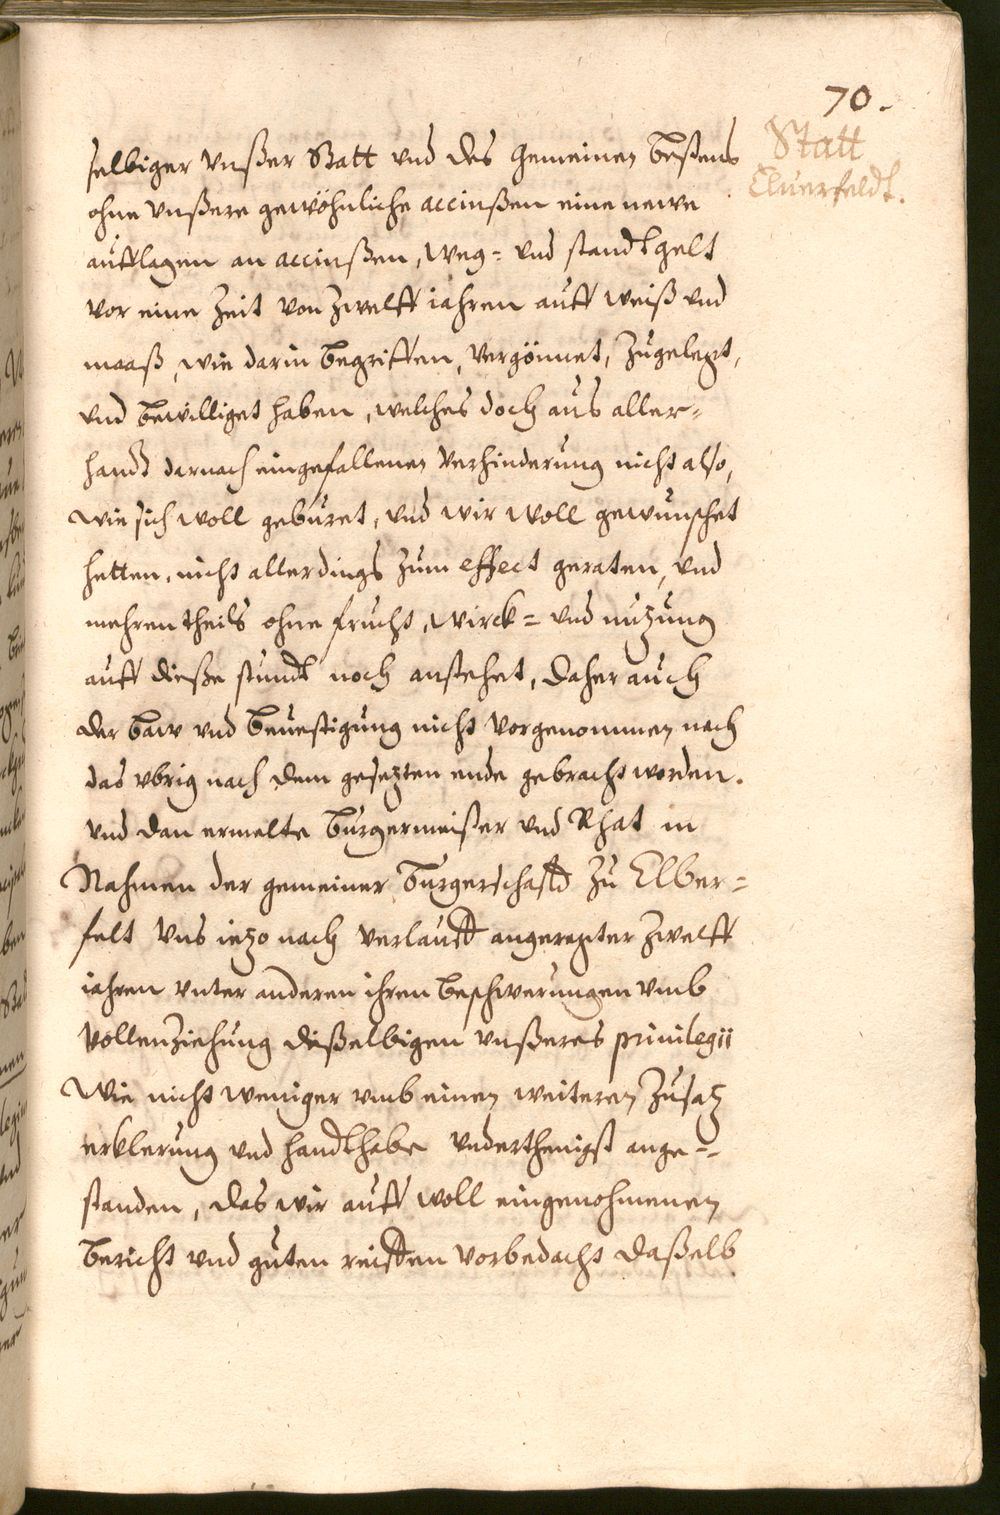 70.
Statt
Eluerfeldt.
selbiger vnßer Statt vnd des gemeinen bestens
ohne vnßere gewöhnliche accinßen eine newe
aufflagen an accinßen, Weg= vnd standtgelt
vor eine Zeit von Zwelff jahren auff weiß vnd
maaß, wie darin begriffen, vergönnet, Zugelegt,
vnd bewilliget haben, welches doch aus aller=
handt darnach eingefallenen Verhinderung nicht also,
wie sich woll geburet, vnd wir woll gewunschet
hetten, nicht allerdings Zum effect geraten, vnd
mehrentheils ohne frucht, wirck= vnd nutzung
auff dieße stundt noch anstehet, daher auch
der baw vnd beuestigung nicht vorgenommen noch
das vbrig nach dem gesetzten ende gebracht worden.
vnd dan ermelte burgermeister vnd Rhat in
Nahmen der gemeiner burgerschafft Zu Elber=
felt vns ietzo nach verlauff angeregter Zwelff
jahren vnter anderen ihren beschwerungen vmb
vollenziehung deßelbigen vnßeres priuilegii
Wie nicht weniger vmb einen weiteren Zusatz
erklerung vnd handthabe vnderthenigst ange=
standen, das wir auff woll eingenohmenen
bericht vnd guten reiffen vorbedacht daßelb